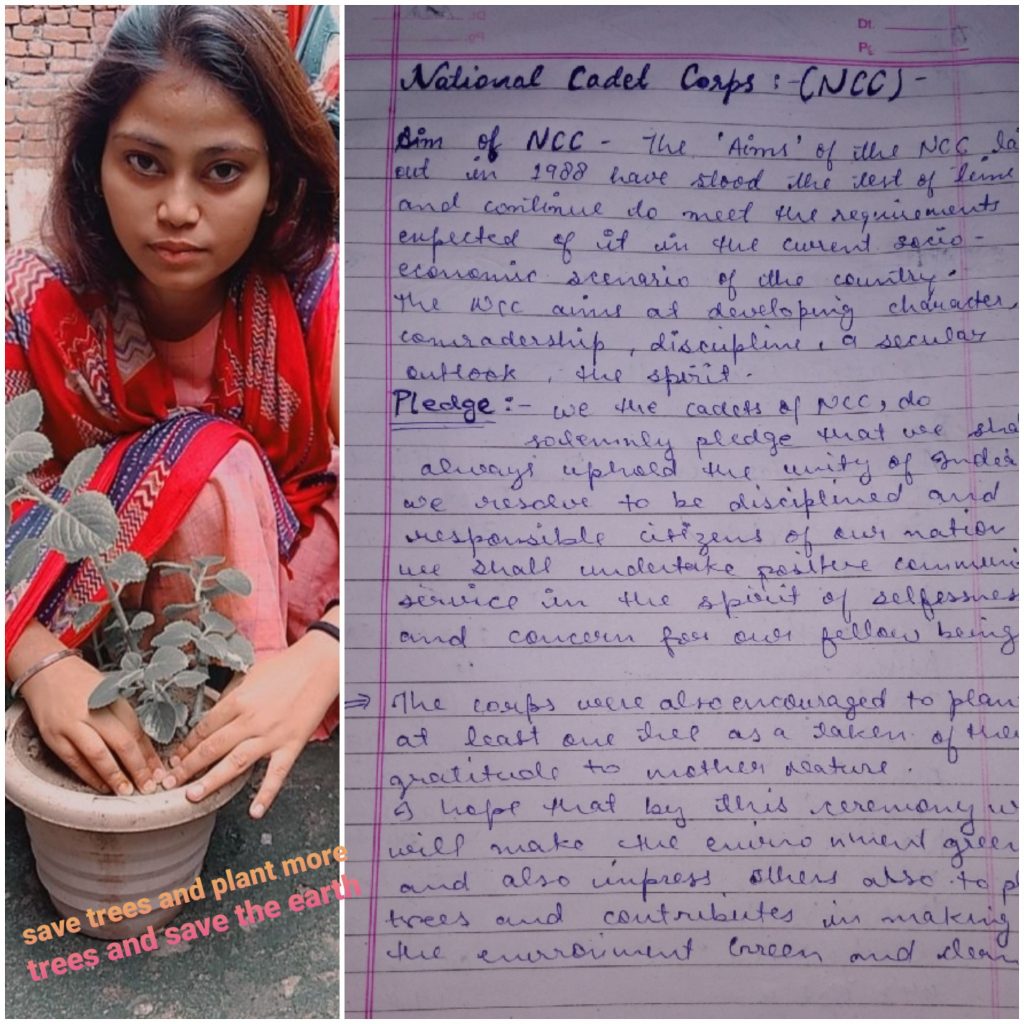 save trees and plant more
trees and save the earth
Dt.
Pg
National Cadet Corps :- (NCC) -
Aim of NCC - The 'Aims' of the NCC la
out in 1988 have stood the test of time
and continue to meet the requirements
expected of it in the current socio-
economic scenario of the country.
The NCC aims at developing character,
comradership, discipline, a secular
outlook, the spirit.
Pledge :- we the cadets of NCC, do
solemnly pledge that we sha
always uphold the unity of India
we resolve to be disciplined and
responsible citizens of our nation
we shall undertake positive communi
service in the spirit of selfessness
and concern for our fellow being
⇒ The corps were also encouraged to plan
at least one tree as a taken of thei
gratitude to mother nature.
I hope that by this ceremony w
will make the enviro nment green
and also impress others also to pl
trees and contributes in making
the enviroiment Green and clean